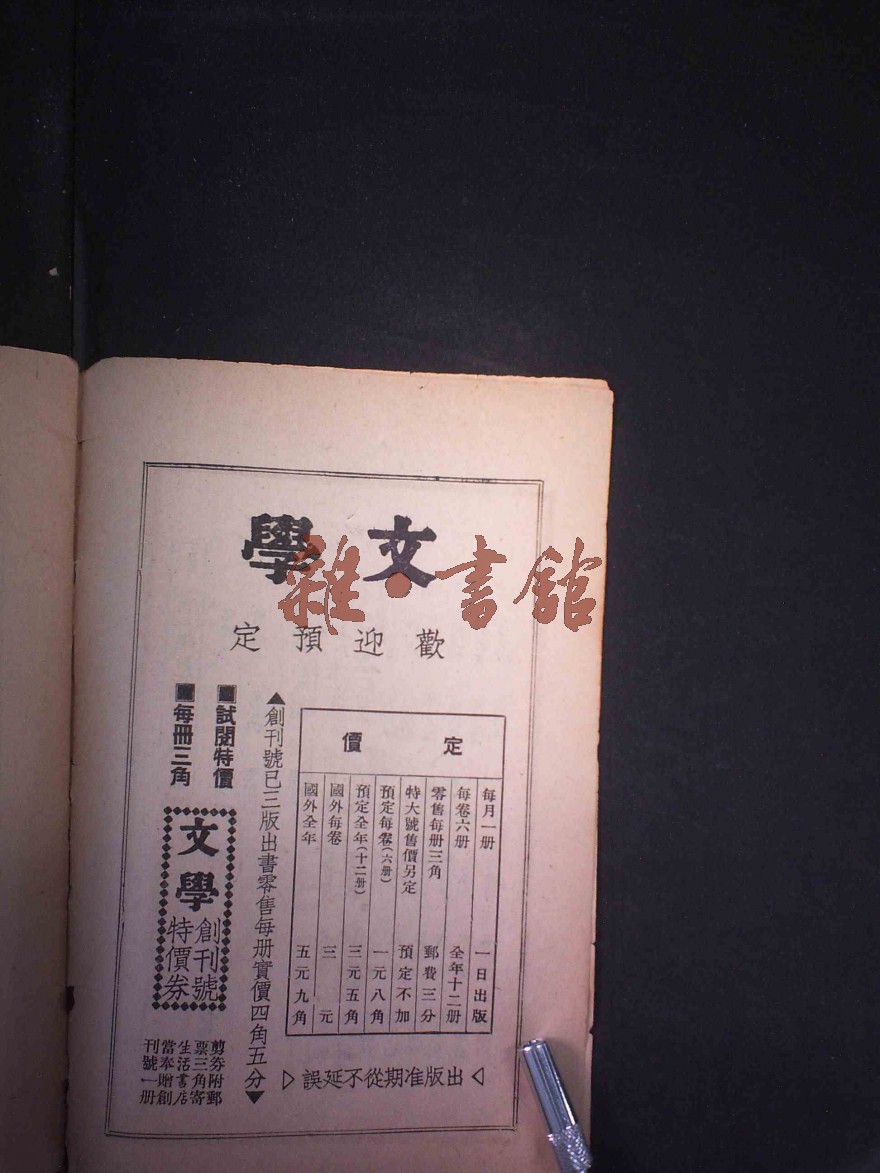 文學
雜·書館
歡迎預定
定價
每月一册 一日出版
每卷六册 全年十二册
零售每册三角 郵費三分
特大號售價另定 預定不加
預定每卷(六册) 一元八角
預定全年(十二册) 三元五角
國外每卷 三元
國外全年 五元九角
◁出版准期從不延誤▷
▲創刊號已三版出書零售每册實價四角五分▼
■試閱特價
■每冊三角
文學
創刊號
特價券
剪券附郵
票三角寄
生活書店
當奉贈創
刊號一册